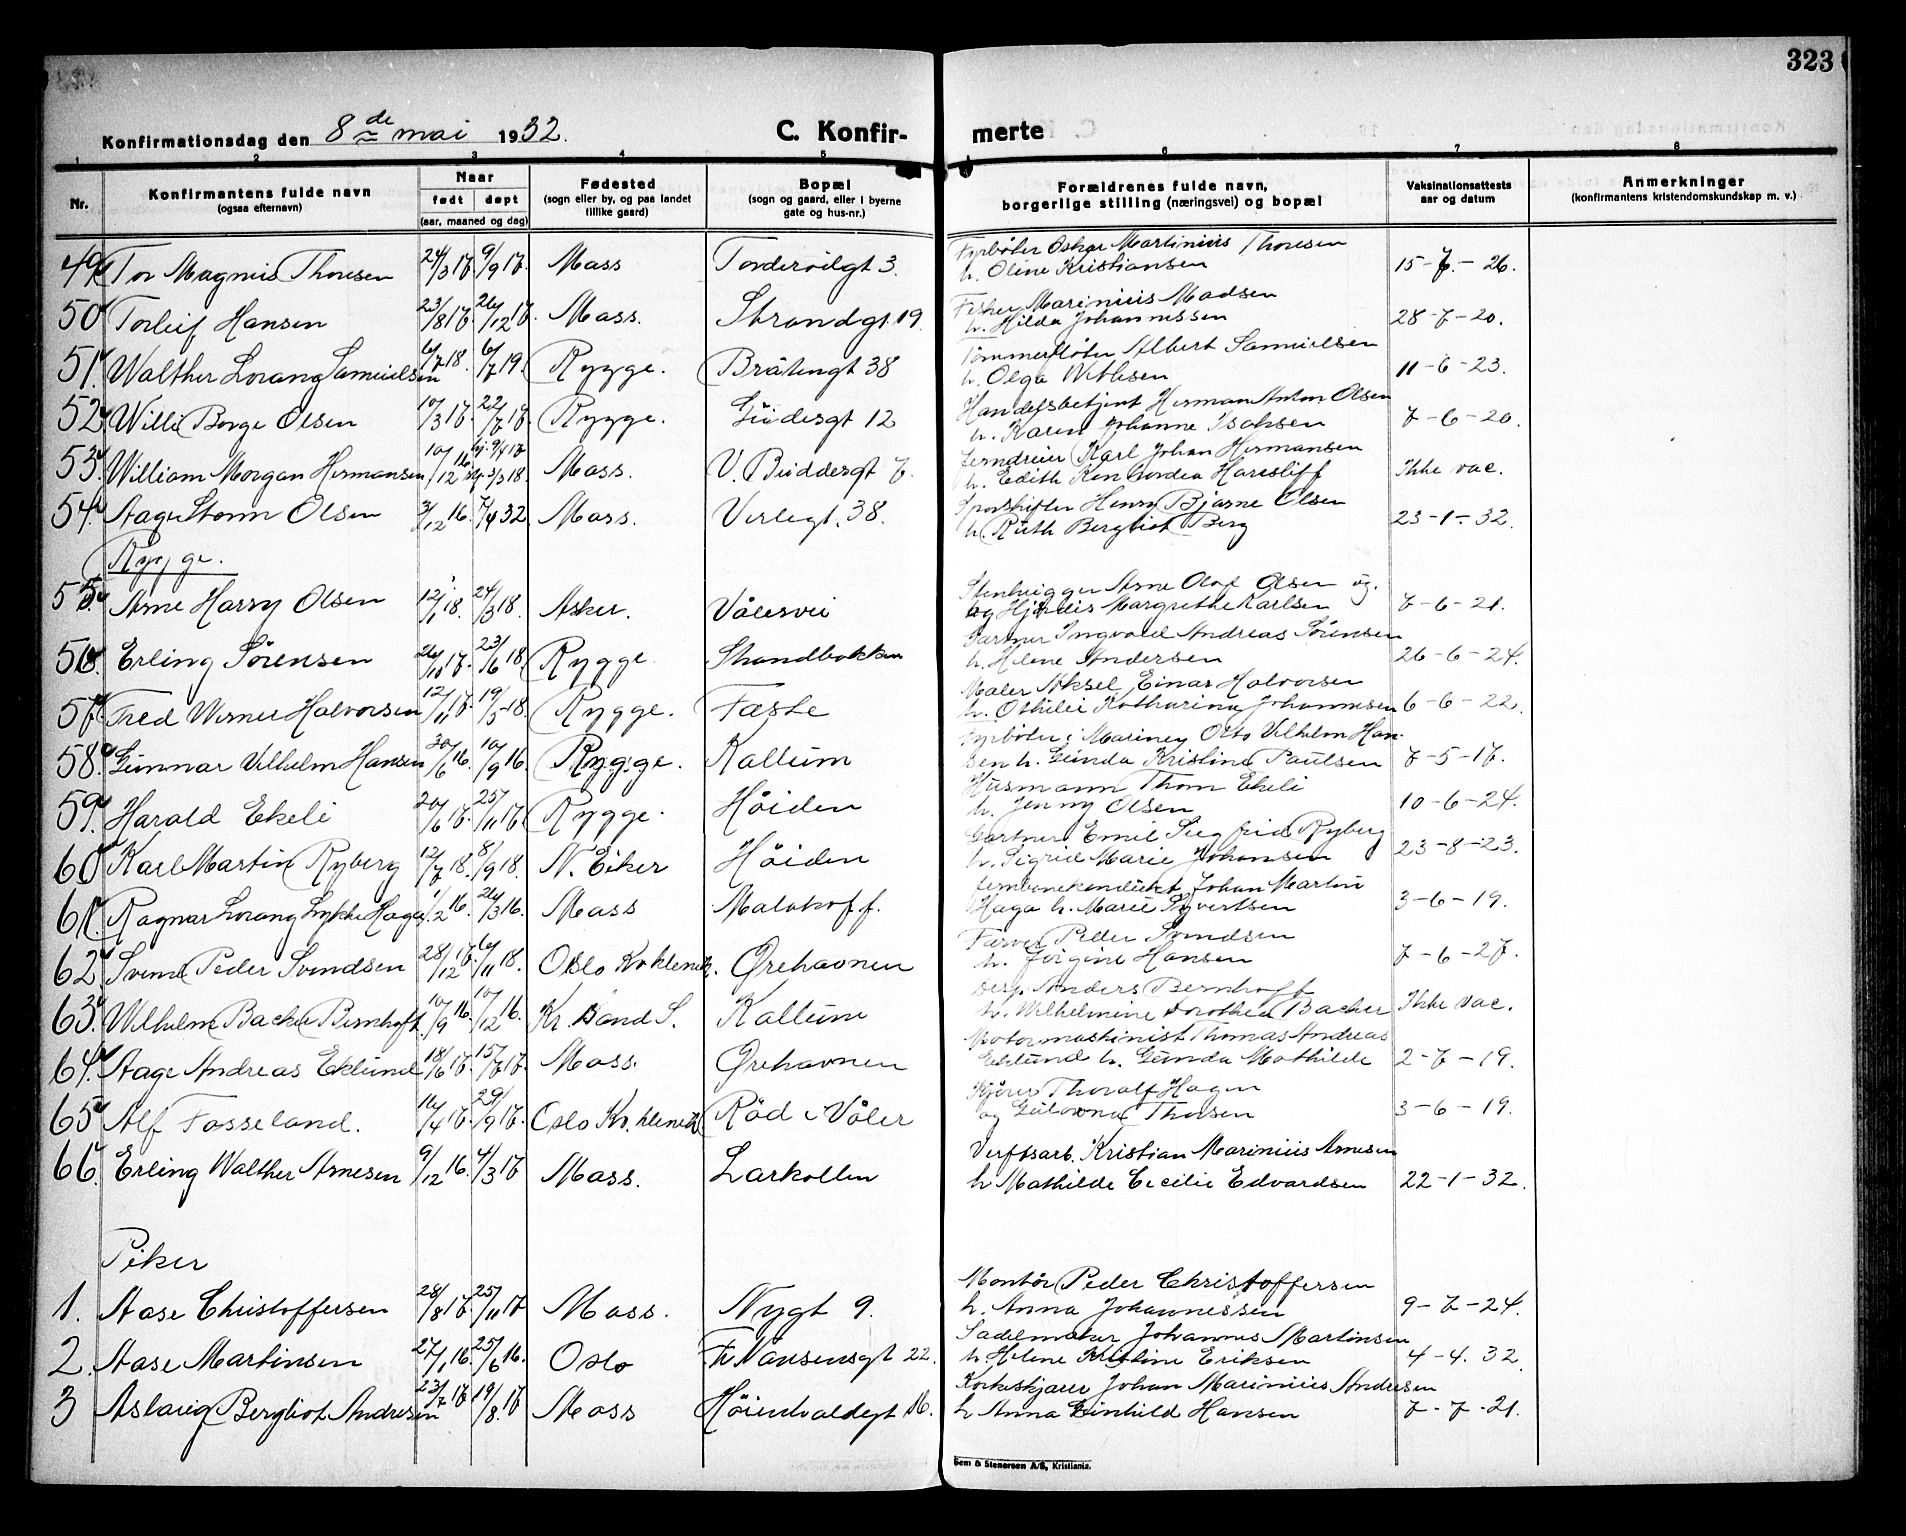 323
Konfirmationsdag den 8de mai 1932.
C. Konfir-merte
1 2 3 4 5 6 7 8
Nr.
Konfirmantens fulde navn
(ogsaa efternavn)
Naar
født døpt
(aar, maaned og dag)
Fødested
(sogn eller by, og paa landet
tillike gaard)
Bopæl
(sogn og gaard, eller i byerne
gate og hus-nr.)
Forældrenes fulde navn,
borgerlige stilling (næringsvei) og bopæl
Vaksinationsattests
aar og datum
Anmerkninger
(konfirmantens kristendomskundskap m. v.)
Fyrbøter Oskar Martinius Thoresen
49. Tor Magnus Thoresen 24/3 17 9/9 17. Moss 3. h. Oline Kristiansen 15-7-26.
Fisker Marinius Madsen
50 Torleif Hansen 23/8 17. 26/12 17. Moss. Strandgt. 19 h. Hilda Johannessen 28-7-20.
Tømmerfløter Albert Samuelsen
51. Walther Lorang Samuelsen 6/7 18. 6/7 19. Rygge. Bråtengt 38 h. Olga 11-6-23.
Handelsbetjent Herman Anton Olsen
52 Willi Borge Olsen 10/3 17. 22/7 17. Rygge. Gudesgt 12 h. Karen Johanne Isaksen 7-6-20.
Jerndreier Karl Johan Hermansen
53. William Morgan Hermansen 10/12 16 Moss. V. Buddesgt 7. h. Edith Ikke vac.
Sporskifter Henry Bjarne Olsen
54. Aage Storm Olsen 3/12 16. 7/4 32 Moss. Verlegt. 38. h. Ruth Bergliot Berg 23-1-32.
Rygge.
Stenhugger Arne Olaf Olsen og.
55. Arne Harry Olsen 12/1 18. 24/3 18. Asker. Vålervei og Hjørdis Margrethe Karlsen 7-6-21.
Gartner Ingvald Andreas Sørensen
56. Erling Sørensen 26/10 17. 23/6 18 Rygge Strandbakken h. Helene Andersen 26-6-24.
Maler Aksel Einar Halvorsen
57. Fred Werner Halvorsen 12/11 17. 19/5-18. Rygge. Feste h. Othilie Katharina Johannesen 6-6-22.
Fyrbøter i Marinen Otto Vilhelm Han-
58. Gunnar Vilhelm Hansen 30/6 16. 10/9 16. Rygge. Kallum sen h. Gunda Kristine Paulsen 7-5-17.
Husmann Thom Ekeli
59. Harald Ekeli 20/6 17. 25/11 17. Rygge. Høiden h. Jenny Olsen 10-6-24.
Gartner Emil Siegfrid Ryberg
60 Karl Martin Ryberg 12/7 18. 8/9 18. N. Eiker Høiden h. Sigrid Marie Johansen 23-8-23.
Jernbanekonduktør Johan Martin
61. Ragnar Lorang Lykke Haga 1/2 16. 26/3 16. Moss Malakoff. Haga h. Marie Syvertsen 3-6-19.
Farver Peder Svendsen
62. Svend Peder Svendsen 28/12 17. 6/11 18. Oslo Kv.klinik. Ørehavnen h. Jørgine Hansen 7-6-27.
Anders Bernhoft
63. Wilhelm Backer Bernhoft 10/9 16. 10/12 16. Kr. Sand S. Kallum h. Wilhelmine Dorothea Backer Ikke vac.
Motormaskinist Thomas Andreas
64. Aage Andreas Eklund 18/6 17. 15/7 17. Moss. Ørehavnen Eklund h. Gunda Mathilde 2-7-19.
Kjører Thoralf Hagen
65 Alf Fosseland. 16/4 17. 29/9 17. Oslo Kv. klinik Rød i Våler og Thorsen 3-6-19.
Verftsarb. Kristian Marinius Arnesen
66. Erling Walther Arnesen 9/12 16. 4/3 17 Moss. Larkollen h Mathilde Cecilie Edvardsen 22-1-32.
Piker
Montør Peder Christoffersen
1. Aase Christoffersen 28/8 17. 25/11 17 Moss. Nygt 9. h. Anna Johannessen 9-7-24.
Sadelmaker Johannes Martinsen
2. Aase Martinsen 27/1 16. 25/6 16. Oslo Fr. Nansensgt 22. h. Helene Kristine Eriksen 4-4.32.
Korkeskjærer Johan Marinius Andresen
3 Aslaug Bergliot Andresen 23/7 17 19/8. 17 Moss Høienhaldsgt 16. h Anna Gunhild Hansen 7-7-21.
Sem & Stenersen A/S, Kristiania.